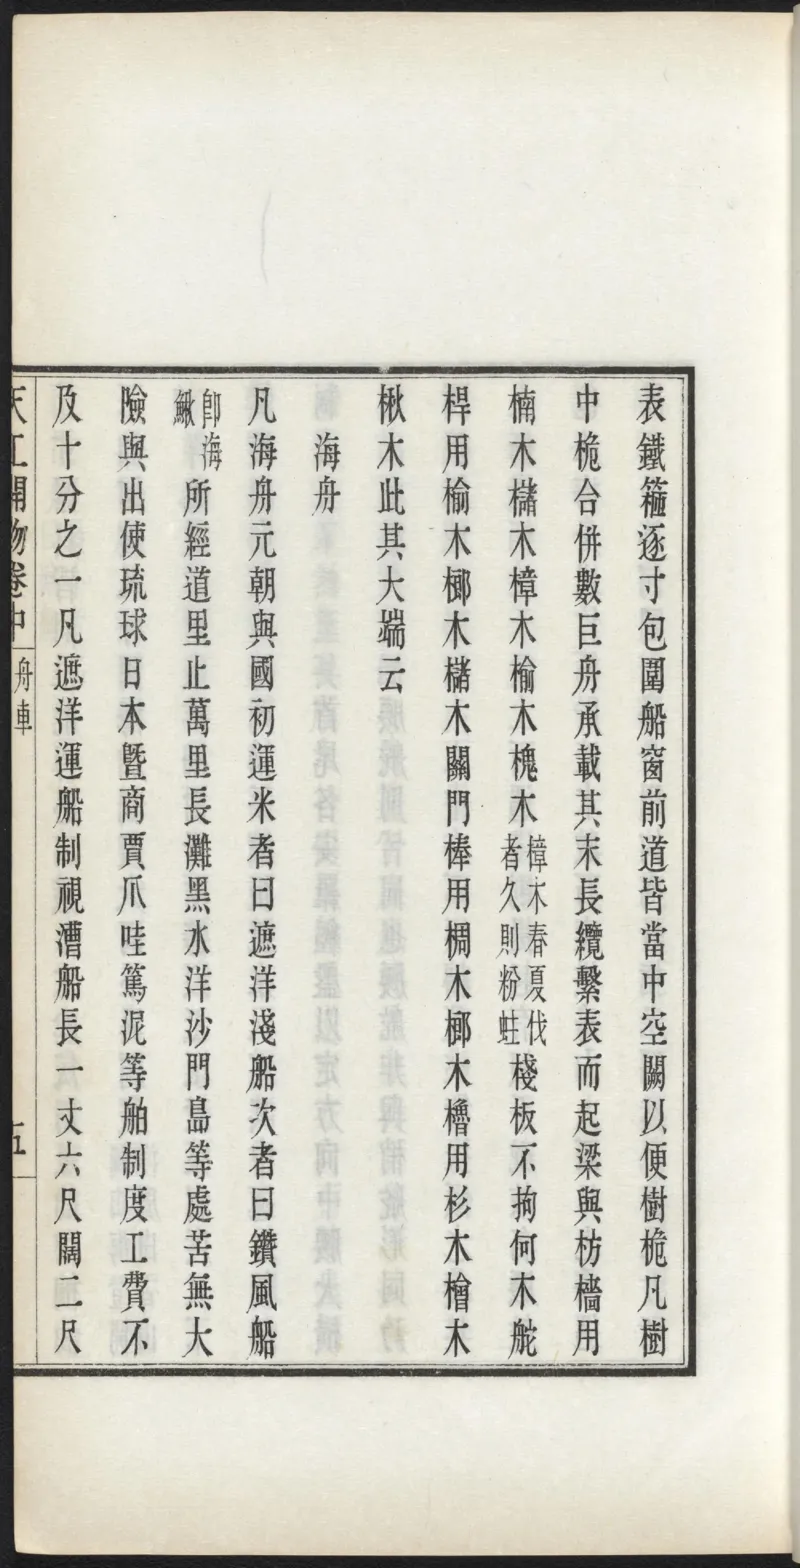 表鐵箍逐寸包圍船窗前道皆當中空闕以便樹桅凡樹
中桅合併數巨舟承載其末長纜繫表而起梁與枋檣用
楠木櫧木樟木榆木槐木樟木春夏伐者久則粉蛀棧板不拘何木舵
桿用榆木榔木櫧木關門棒用椆木榔木櫓用杉木檜木
楸木此其大端云
海舟
凡海舟元朝與國初運米者曰遮洋淺船次者曰鑽風船
卽海鰍所經道里止萬里長灘黑水洋沙門島等處苦無大
險與出使琉球日本暨商賈爪哇篤泥等舶制度工費不
及十分之一凡遮洋運船制視漕船長一丈六尺闊二尺
天工開物卷中 舟車 五